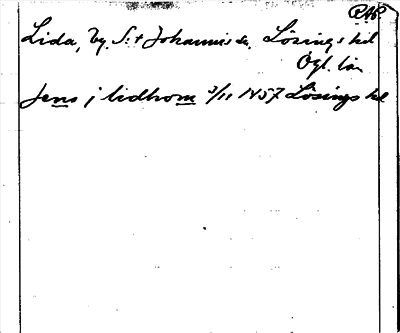 RAP
Lida, by. S:t Johannis sn. Lösings hd
Ögl. län
Jens j lidhom 3/11 1457 Lösings hd